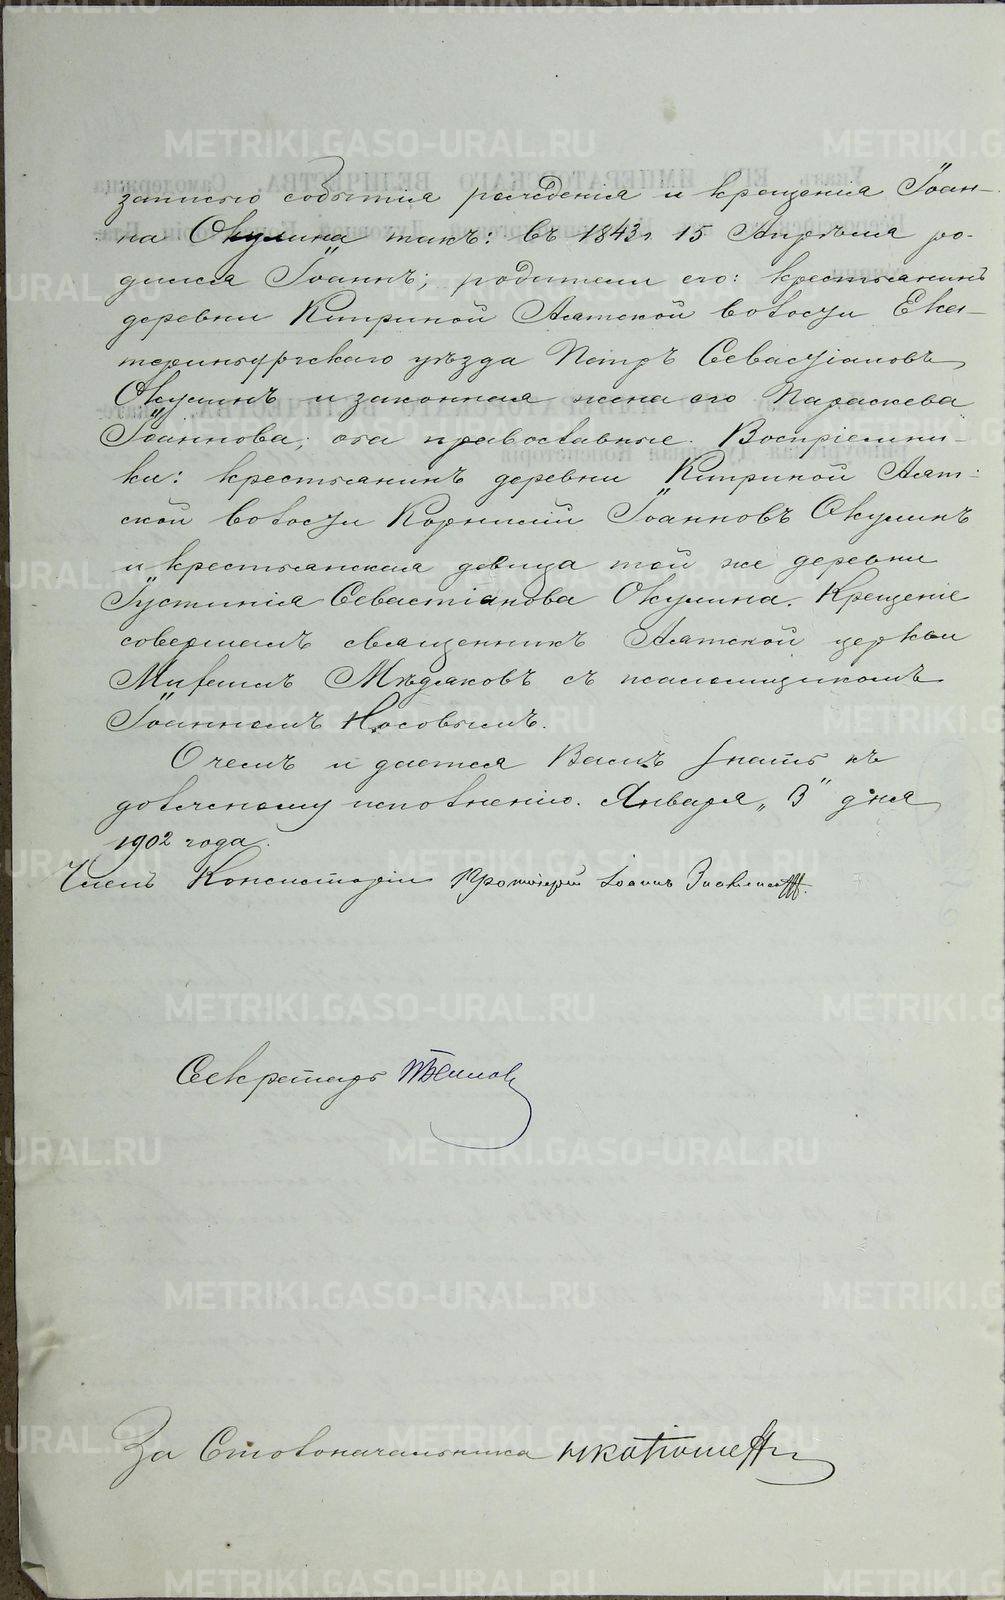 записью событія рожденія и крещенія Іоан-
на Окулина такъ: въ 1843 г. 15 Апрѣля ро-
дился Іоаннъ; родители его: крестьянинъ
деревни Киприной Аятской волости Ека-
теринбургскаго уѣзда Петръ Севастіановъ
Окулинъ и законная жена его Параскева
Іоаннова; оба православные. Воспріемни-
ки: крестьянинъ деревни Киприной Аят-
ской волости Корнилій Іоанновъ Окулинъ
и крестьянская дѣвица той же деревни
Іустинія Севастіанова Окулина. Крещеніе
совершалъ священникъ Аятской церкви
Михаилъ Мѣдяковъ съ псаломщикомъ
Іоанномъ Носовымъ.
О чемъ и дается Вамъ знать къ
должному исполненію. Января „3" дня
1902 года.
Членъ Консисторіи Протоіерей Іоаннъ
Секретарь
За Столоначальника
METRIKI.GASO-URAL.RU